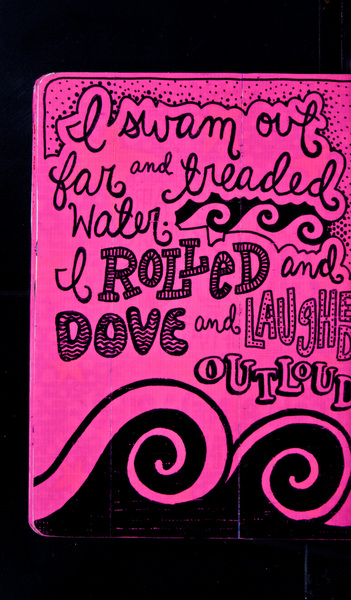 I swam out
far and treaded
Water.
I ROLLeD and
DOVE and LAUGHED
OUTLOUD